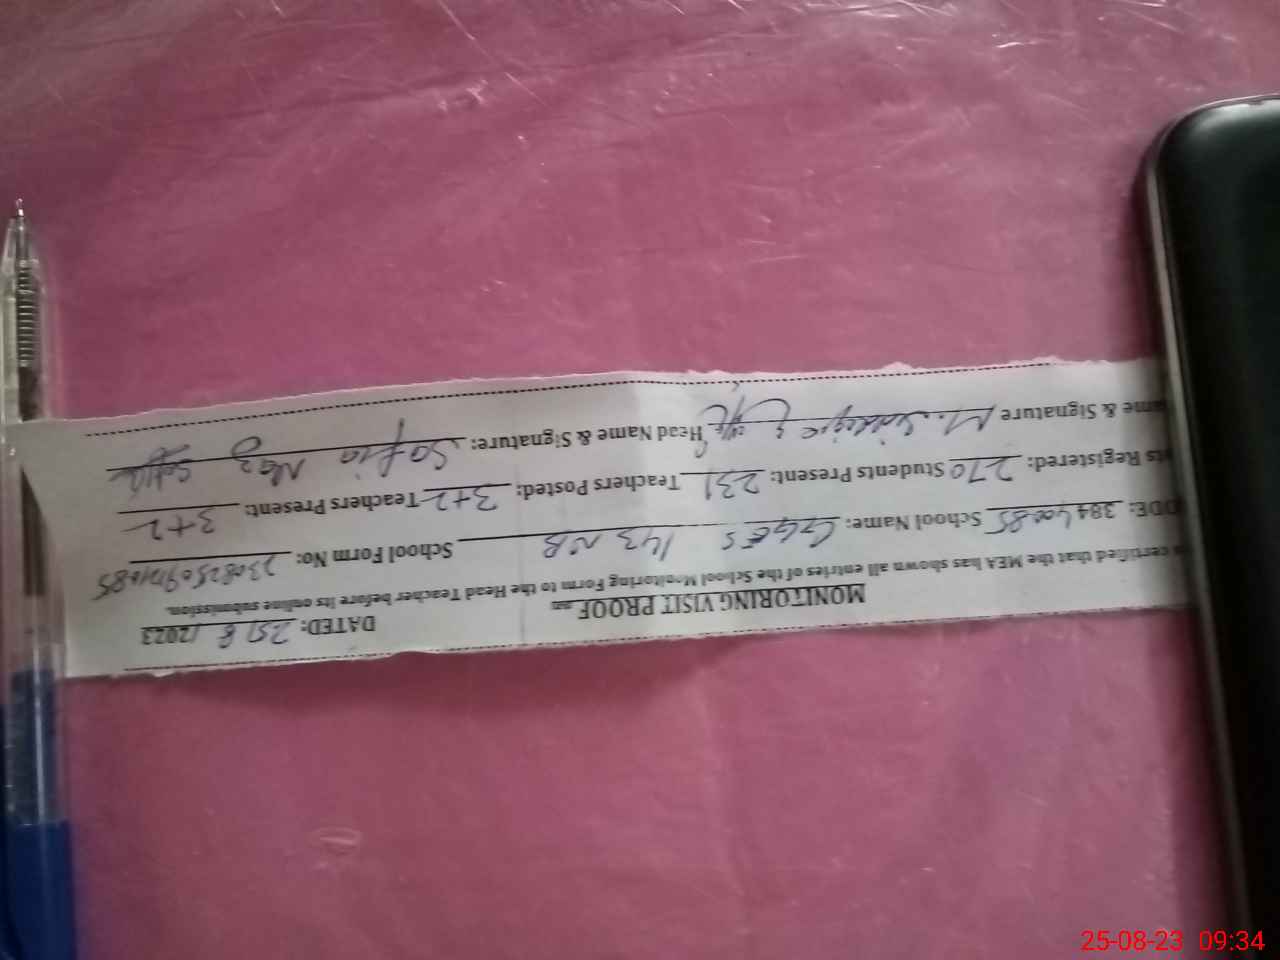 MONITORING VISIT PROOF DATED: 25/8/2023
certified that the MEA has shown all entries of the School Monitoring Form to the Head Teacher before its online submission.
ODE: 38440085 School Name: GGES 143 NB School Form No:
ts Registered: 270 Students Present: 231 Teachers Posted: 3+2 Teachers Present: 3+2
ame & Signature M. Head Name & Signature: Safia Naz Safia
25-08-23 09:34